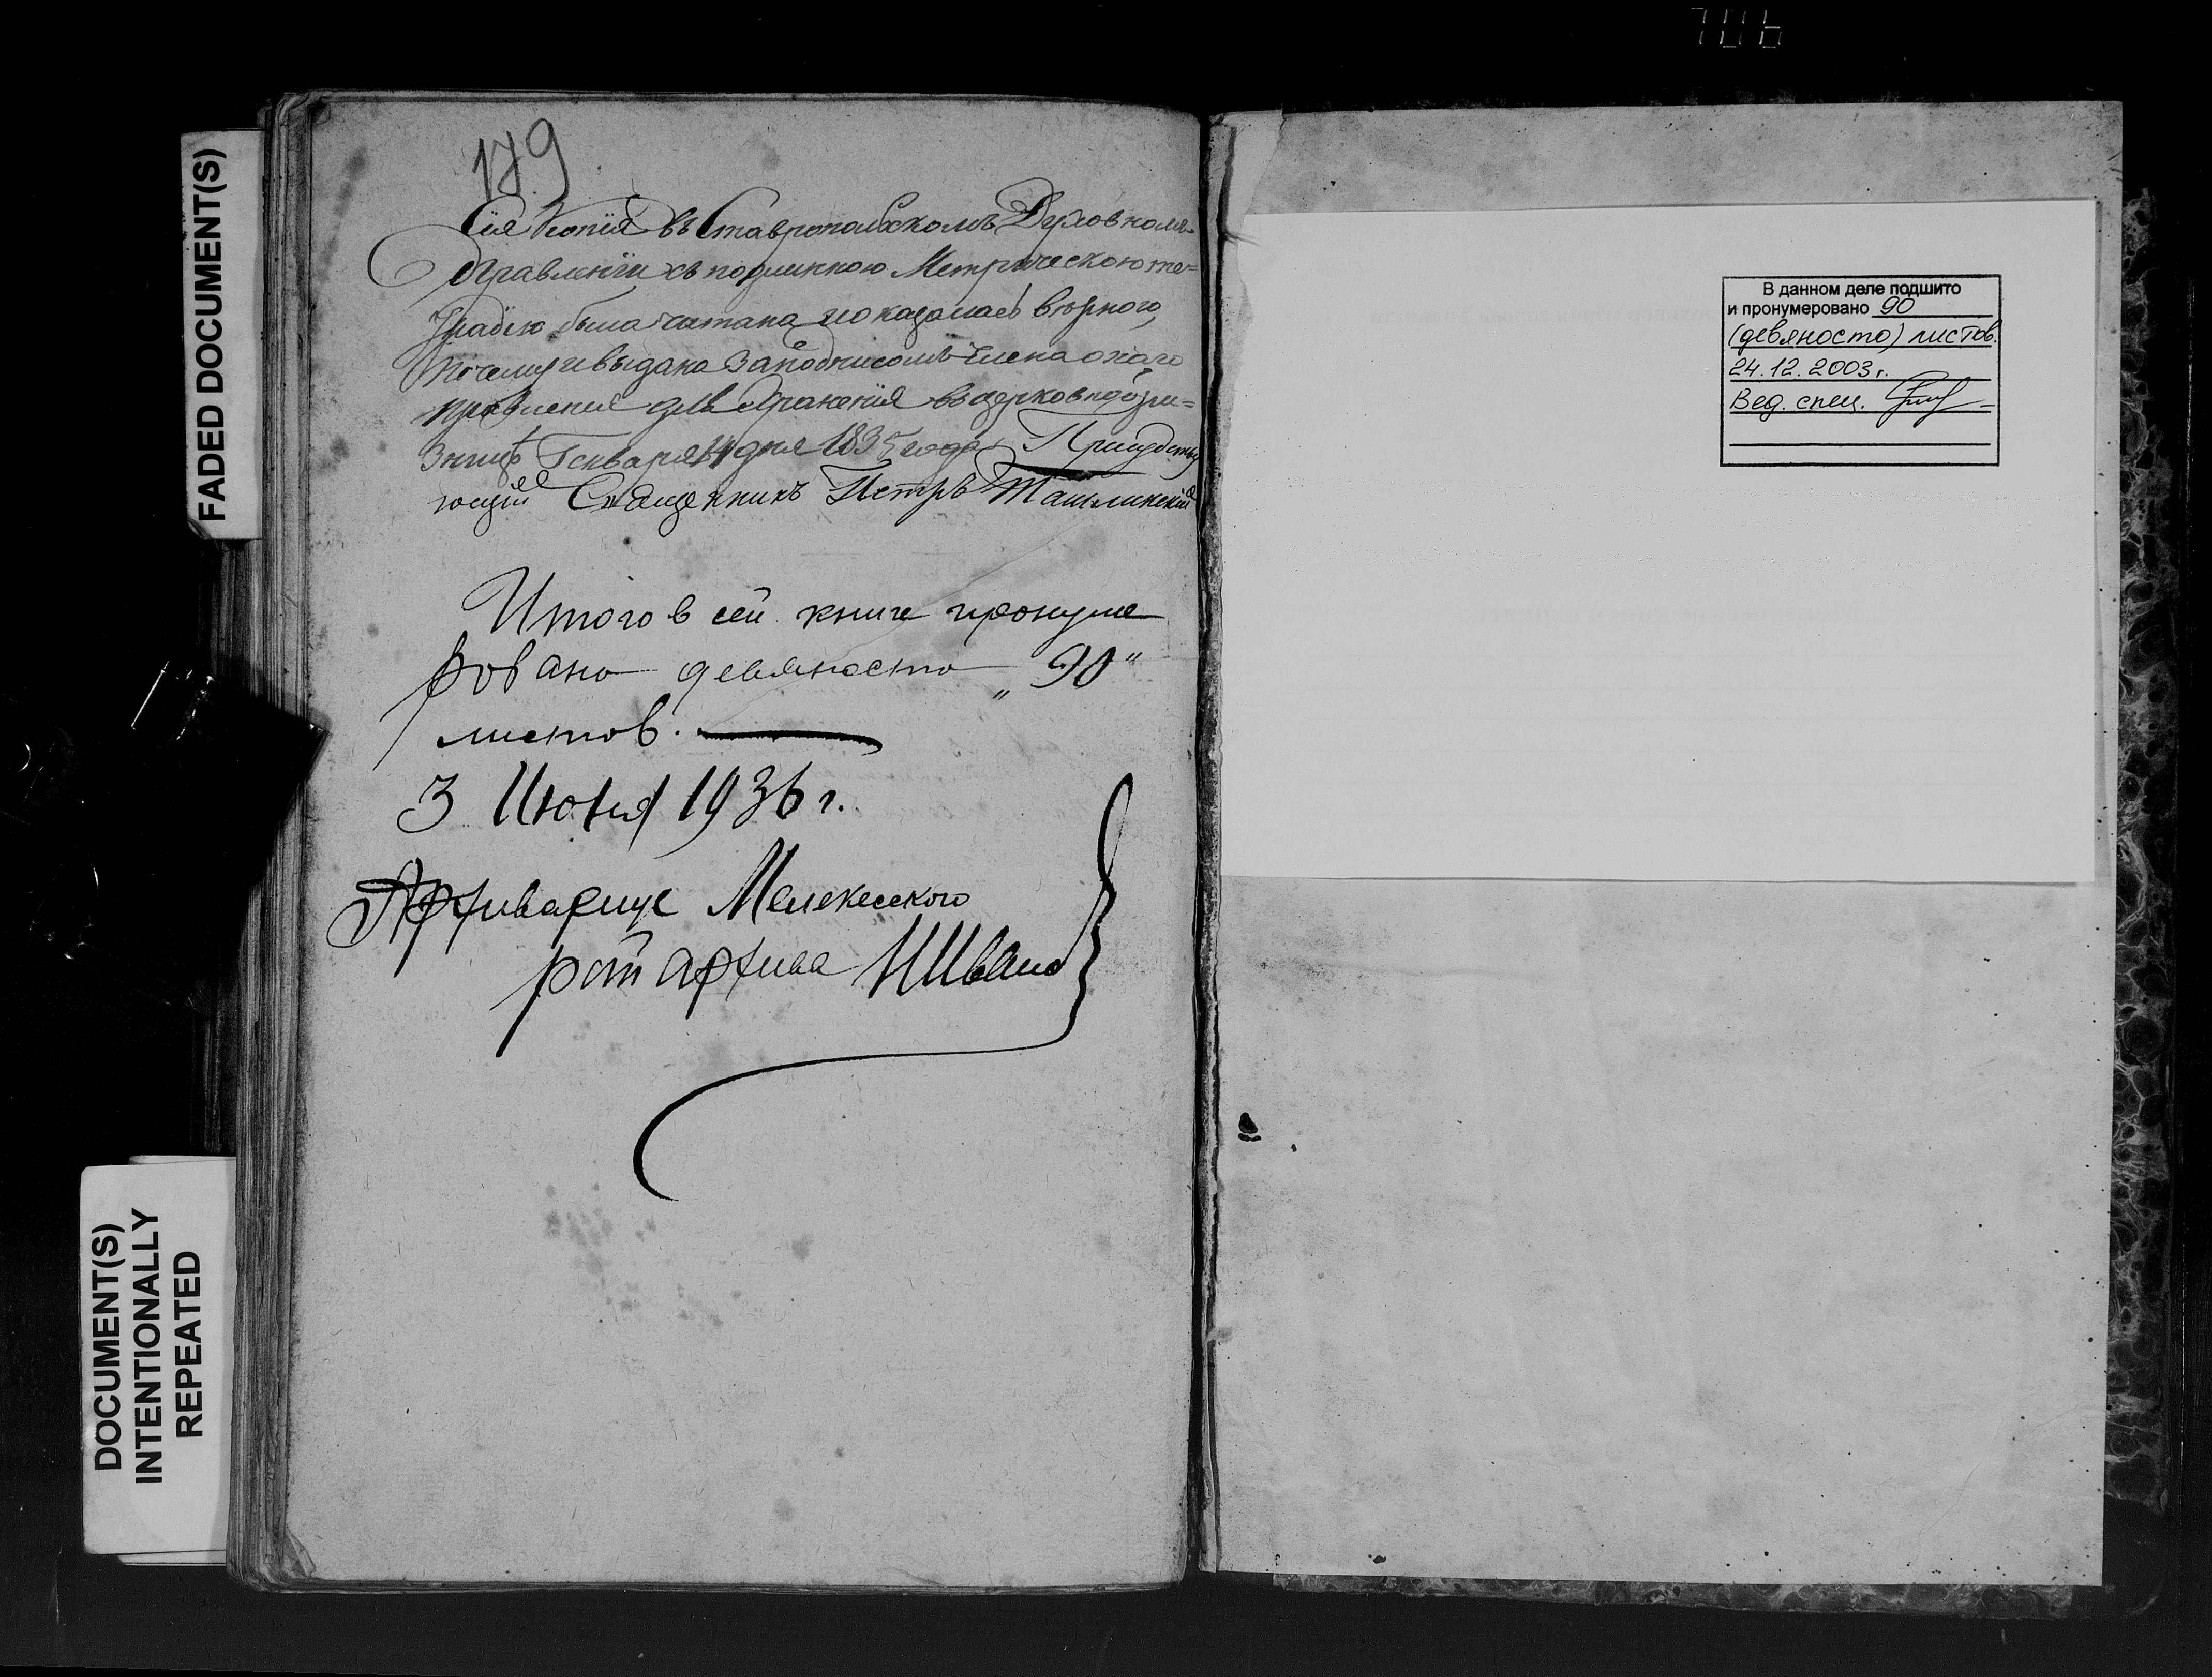 179
Сія Копія въ Ставропольскомъ Духовномъ
Правленіи съ подлинною Метрическою те=
традью была читана и оказалась вѣрною,
почему и выдана за подписомъ члена онаго
правленія для храненія въ церковной ри=
зницѣ Генваря 14 дня 1835 года Присудству
ющій Священникъ Петръ Ташлинскій
Итого в сей книге пронуме
ровано девяносто „90"
листов.
3 Июня 1936 г.
Архивариус Мелекесского
рай архива ИИвано
FADED DOCUMENT(S)
DOCUMENT(S)
INTENTIONALLY
REPEATED
В данном деле подшито
и пронумеровано 90
(девяносто) листов.
24.12.2003г.
Вед. спец.